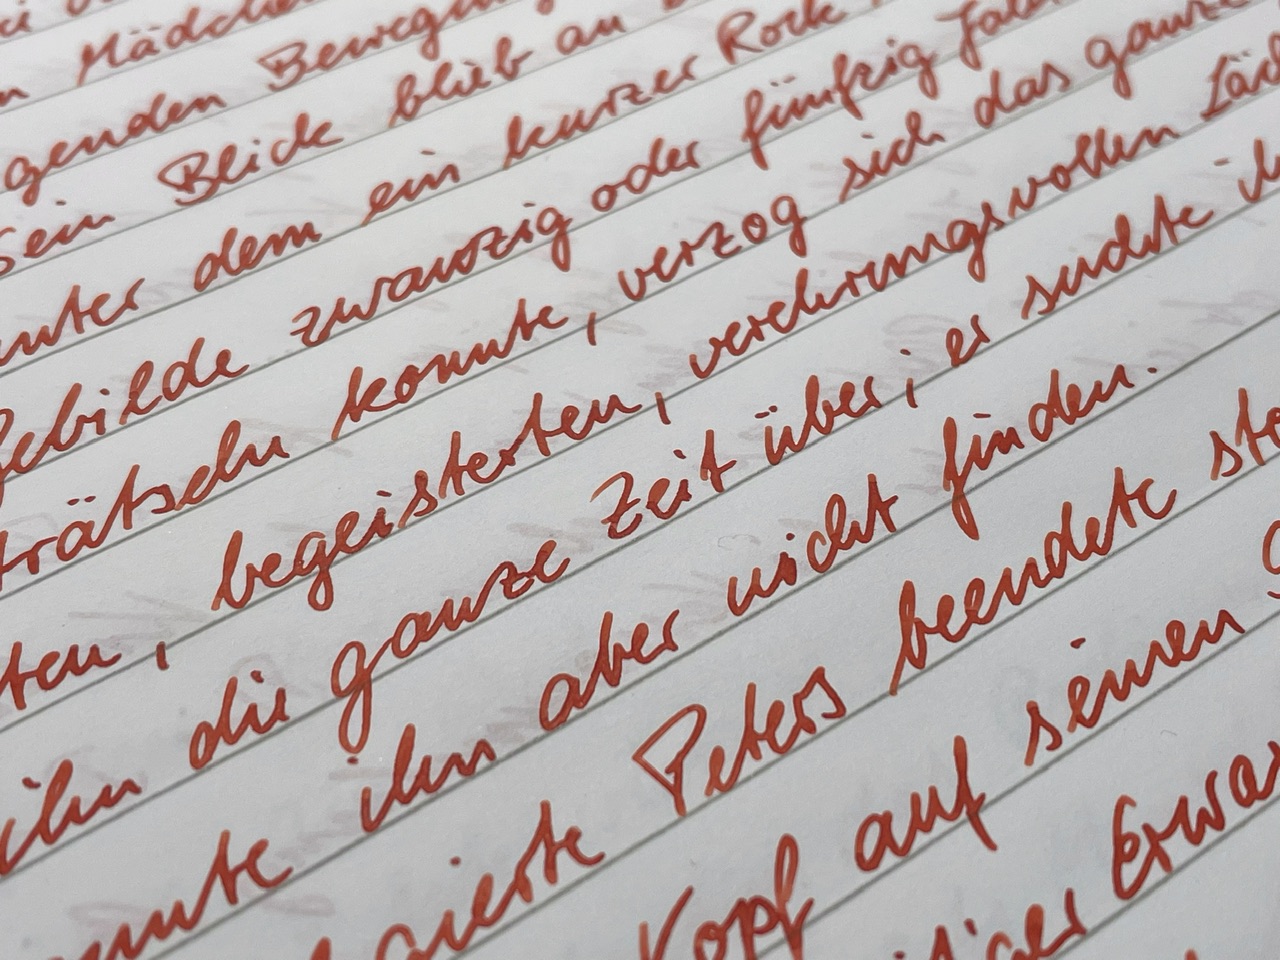 Mädchen
genden Beweg
sein Blick blieb an
unter dem ein kurzer Rock
Gebilde zwanzig oder fünfzig Jahr
rätseln konnte, verzog sich das ganze
ten, begeisterten, verehrungsvollen Läch
ihn die ganze Zeit über, er suchte ih
nnte ihn aber nicht finden.
Peters beendete
Kopf auf seinen
Erwar